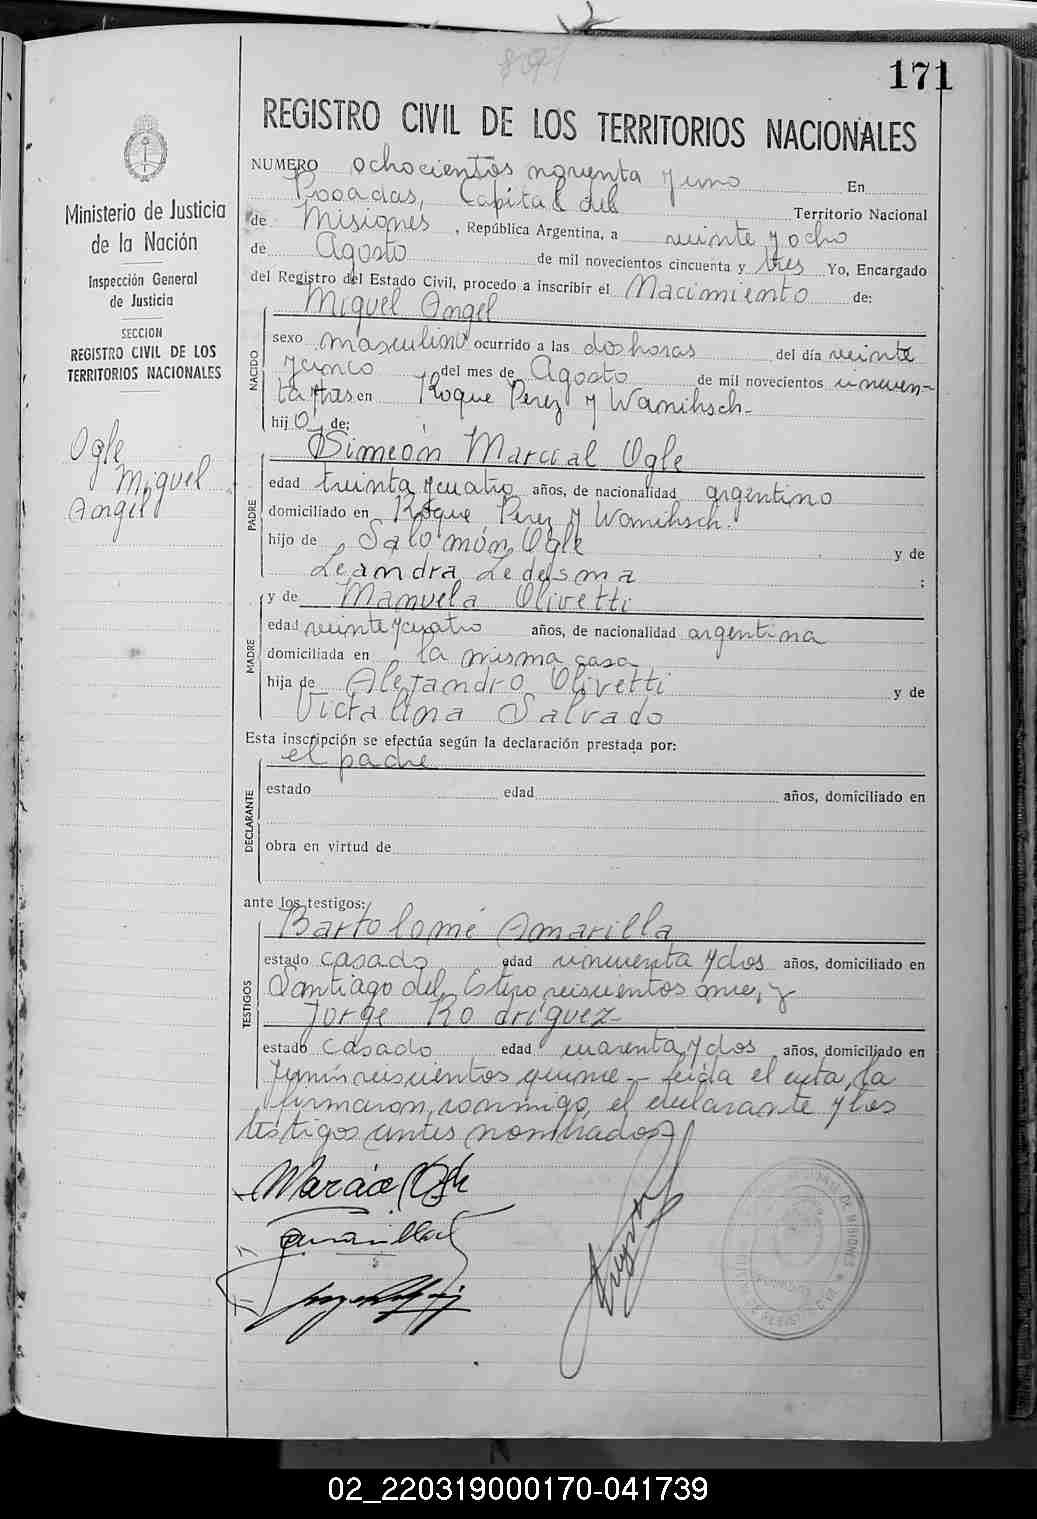 891
171
REGISTRO CIVIL DE LOS TERRITORIOS NACIONALES
Ministerio de Justicia
de la Nación
Inspección General
de Justicia
SECCION
REGISTRO CIVIL DE LOS
TERRITORIOS NACIONALES
Ogle
Miguel
Angel
NUMERO ochocientos noventa y uno En
Posadas, Capital del Territorio Nacional
de Misiones, República Argentina, a veinte y ocho
de Agosto de mil novecientos cincuenta y tres Yo, Encargado
del Registro del Estado Civil, procedo a inscribir el Nacimiento de:
Miguel Angel
NACIDO
sexo masculino ocurrido a las dos horas del día veinte
y cinco del mes de Agosto de mil novecientos cincuen-
ta y tres en Roque Perez y Wanihsch-
hijo de:
Simeón Marcial Ogle
PADRE
edad treinta y cuatro años, de nacionalidad argentino
domiciliado en Roque Perez y Wanihsch.
hijo de Salomón Ogle y de
Leandra Ledesma ;
y de Manuela Olivetti
MADRE
edad veinte y cuatro años, de nacionalidad argentina
domiciliada en la misma casa
hija de Alejandro Olivetti y de
Victalina Salvado
Esta inscripción se efectúa según la declaración prestada por:
el padre
DECLARANTE
estado edad años, domiciliado en
obra en virtud de
ante los testigos:
Bartolomé Amarilla
TESTIGOS
estado casado edad cincuenta y dos años, domiciliado en
Santiago del Estero seiscientos once, y
Jorge Rodríguez-
estado casado edad cuarenta y dos años, domiciliado en
Junín seiscientos quince - Leida el acta, la
firmaron, conmigo, el declarante y los
testigos antes nombrados
02_220319000170-041739